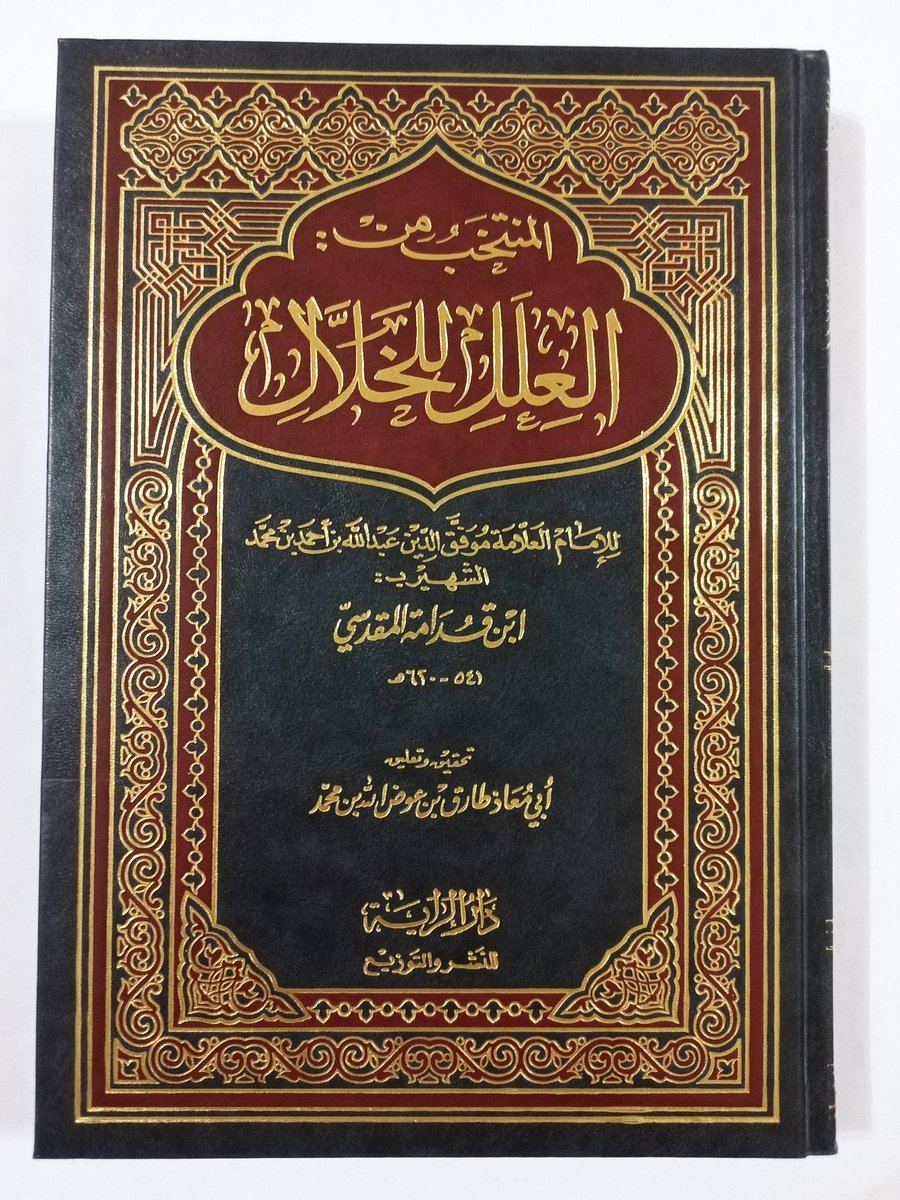 المنتخب من:
العِلَلِ للخَلَّالِ
للإمام العلّامة موفّق الدّين عبد الله بن أحمد بن محمّد
الشهير بـ:
ابن قدامة المقدسيّ
٥٤١ - ٦٢٠ هـ
تحقيق وتعليق
أبي مُعاذ طارق بن عوض الله بن محمّد
دار الراية
للنشر والتوزيع